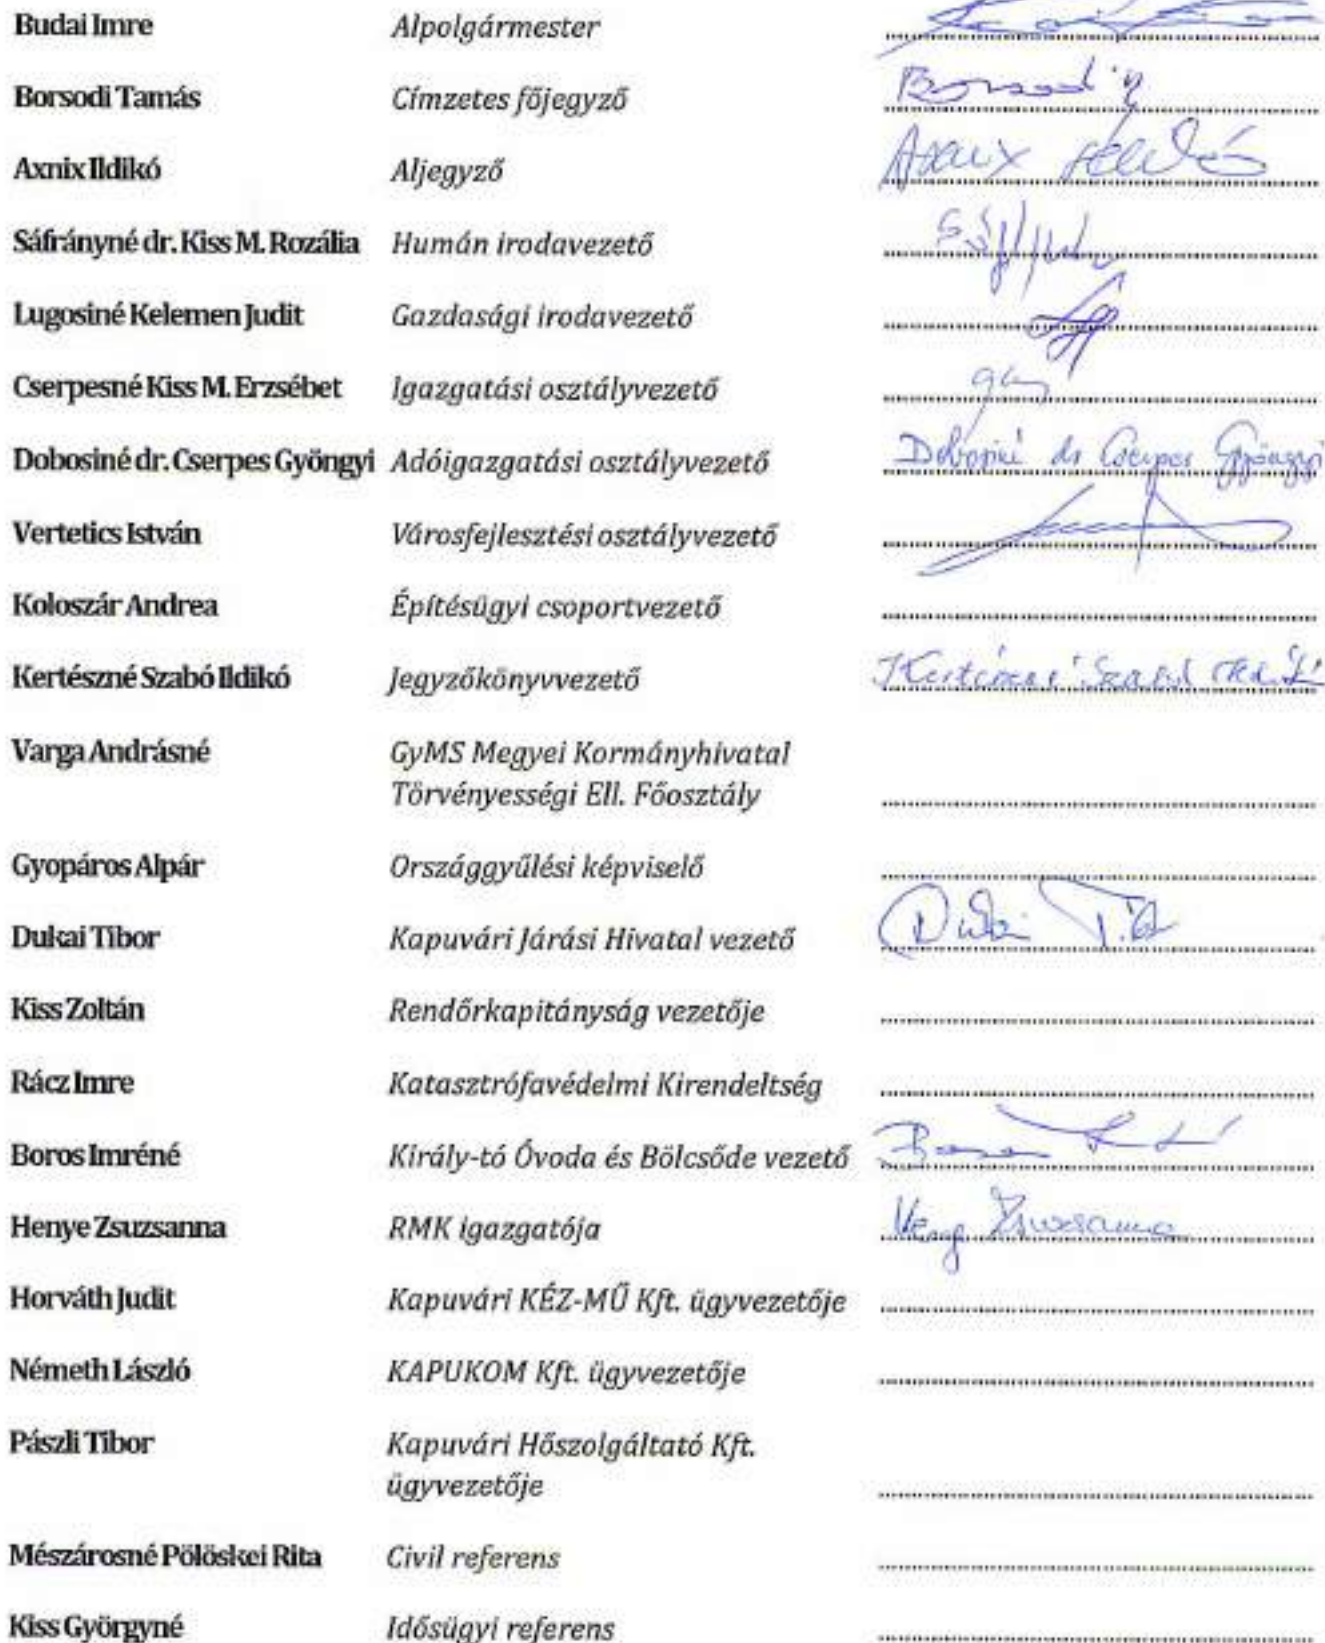 Budai Imre Alpolgármester
Borsodi Tamás Címzetes főjegyző Borsodi T
Axnix Ildikó Aljegyző Axnix Ildikó
Sáfrányné dr. Kiss M. Rozália Humán irodavezető
Lugosiné Kelemen Judit Gazdasági irodavezető
Cserpesné Kiss M. Erzsébet Igazgatási osztályvezető
Dobosiné dr. Cserpes Gyöngyi Adóigazgatási osztályvezető Dobosiné dr Cserpes Gyöngyi
Vertetics István Városfejlesztési osztályvezető
Koloszár Andrea Építésügyi csoportvezető
Kertészné Szabó Ildikó Jegyzőkönyvvezető Kertészné Szabó Ildikó
Varga Andrásné GyMS Megyei Kormányhivatal
Törvényességi Ell. Főosztály
Gyopáros Alpár Országgyűlési képviselő
Dukai Tibor Kapuvári Járási Hivatal vezető Dukai Tibor
Kiss Zoltán Rendőrkapitányság vezetője
Rácz Imre Katasztrófavédelmi Kirendeltség
Boros Imréné Király-tó Óvoda és Bölcsőde vezető Boros
Henye Zsuzsanna RMK igazgatója Henye Zsuzsanna
Horváth Judit Kapuvári KÉZ-MŰ Kft. ügyvezetője
Németh László KAPUKOM Kft. ügyvezetője
Pászli Tibor Kapuvári Hőszolgáltató Kft.
ügyvezetője
Mészárosné Pölöskei Rita Civil referens
Kiss Györgyné Idősügyi referens